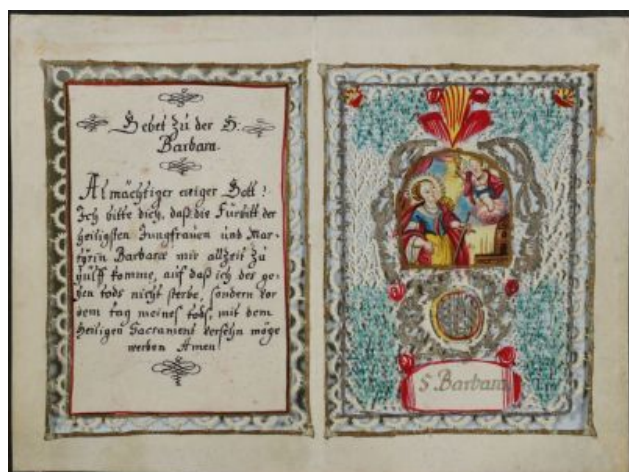 Gebet zu der S:
Barbara.
Almächtiger ewiger Gott!
Ich bitte dich, daß die Fürbitt der
heiligsten Jungfrauen und Mar-
tyrin Barbaræ mir allzeit zu
hülff komme, auf daß ich des ge-
hen tods nicht sterbe, sondern vor
dem tag meines tods, mit dem
heiligen Sacrament versehn möge
werden Amen!
S. Barbara